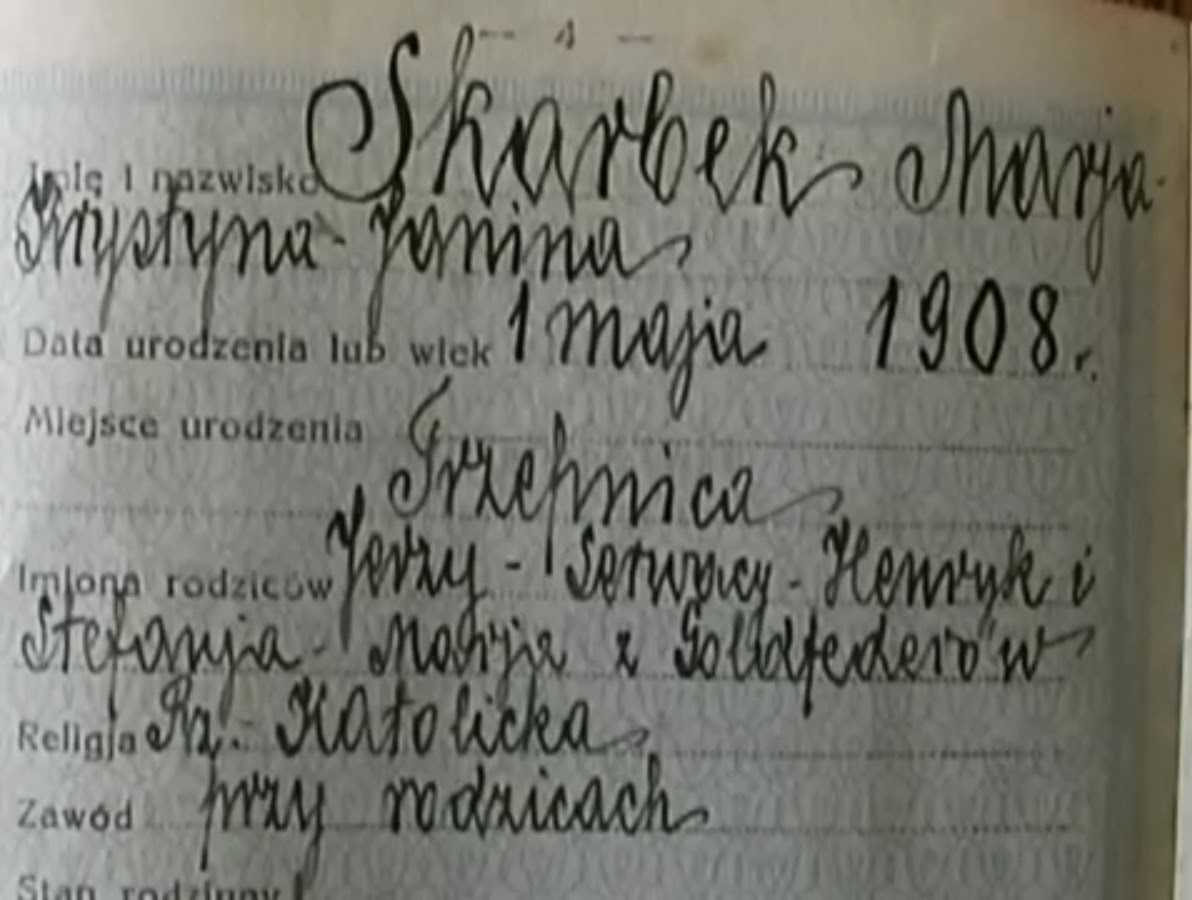 — 4 —
Imię i nazwisko Skarbek Marja-
Krystyna-Janina
Data urodzenia lub wiek 1 maja 1908 r.
Miejsce urodzenia
Trzepnica
Imiona rodziców Jerzy - Serwacy - Henryk i
Stefanja - Marja z Goldfederów
Religja Rz.-Katolicka
Zawód przy rodzicach
Stan rodzinny